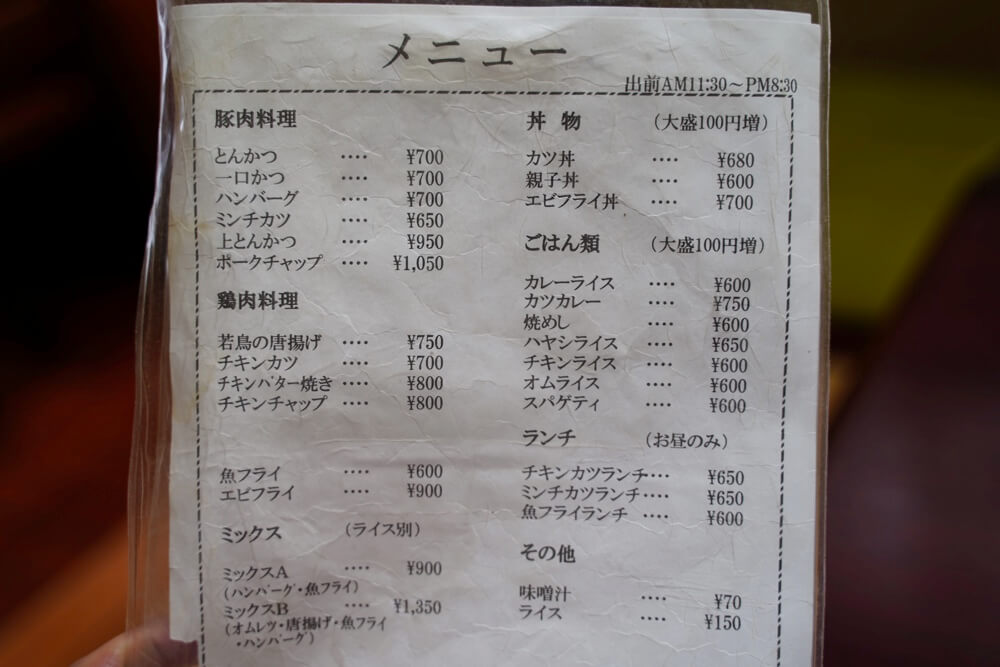 メニュー
出前AM11:30～PM8:30
豚肉料理
とんかつ ‥‥ ¥700
一口かつ ‥‥ ¥700
ハンバーグ ‥‥ ¥700
ミンチカツ ‥‥ ¥650
上とんかつ ‥‥ ¥950
ポークチャップ ‥‥ ¥1,050
鶏肉料理
若鳥の唐揚げ ‥‥ ¥750
チキンカツ ‥‥ ¥700
チキンバター焼き ‥‥ ¥800
チキンチャップ ‥‥ ¥800
魚フライ ‥‥ ¥600
エビフライ ‥‥ ¥900
ミックス （ライス別）
ミックスA ‥‥ ¥900
（ハンバーグ・魚フライ）
ミックスB ‥‥ ¥1,350
（オムレツ・唐揚げ・魚フライ
・ハンバーグ）
丼物 （大盛100円増）
カツ丼 ‥‥ ¥680
親子丼 ‥‥ ¥600
エビフライ丼 ‥‥ ¥700
ごはん類 （大盛100円増）
カレーライス ‥‥ ¥600
カツカレー ‥‥ ¥750
焼めし ‥‥ ¥600
ハヤシライス ‥‥ ¥650
チキンライス ‥‥ ¥600
オムライス ‥‥ ¥600
スパゲティ ‥‥ ¥600
ランチ （お昼のみ）
チキンカツランチ‥‥ ¥650
ミンチカツランチ‥‥ ¥650
魚フライランチ ‥‥ ¥600
その他
味噌汁 ‥‥ ¥70
ライス ‥‥ ¥150